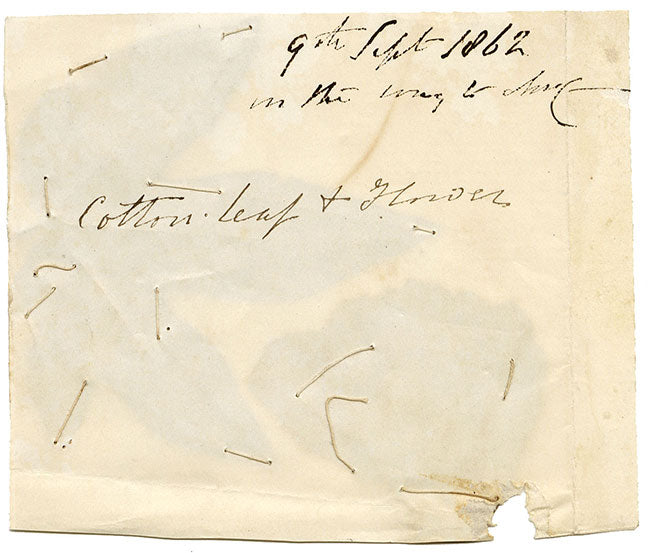 9th Sept 1862
in the way to
Cotton. leaf & Flower